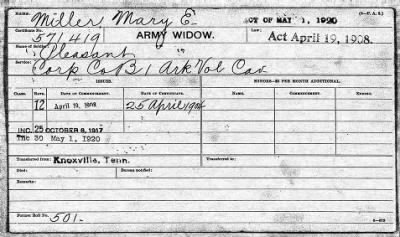 (3-C. P. A. S.)
Miller, Mary E. ACT OF MAY 1, 1920
Certificate No. 571419 ARMY WIDOW. Law, Act April 19, 1908.
Name of Soldier: Pleasant "
Service: Corp Co B 1 Ark Vol Cav
ISSUES. MINORS—$2 PER MONTH ADDITIONAL.
CLASS. RATE. DATE OF COMMENCEMENT. DATE OF CERTIFICATE. DATE OF COMMENCEMENT.
12 April 19, 1908 25 April 1908
INC. 25 OCTOBER 6, 1917
Inc 30 May 1, 1920
Transferred from: Knoxville, Tenn. Transferred to:
Died: Bureau notified:
Remarks:
Former Roll No. 501-